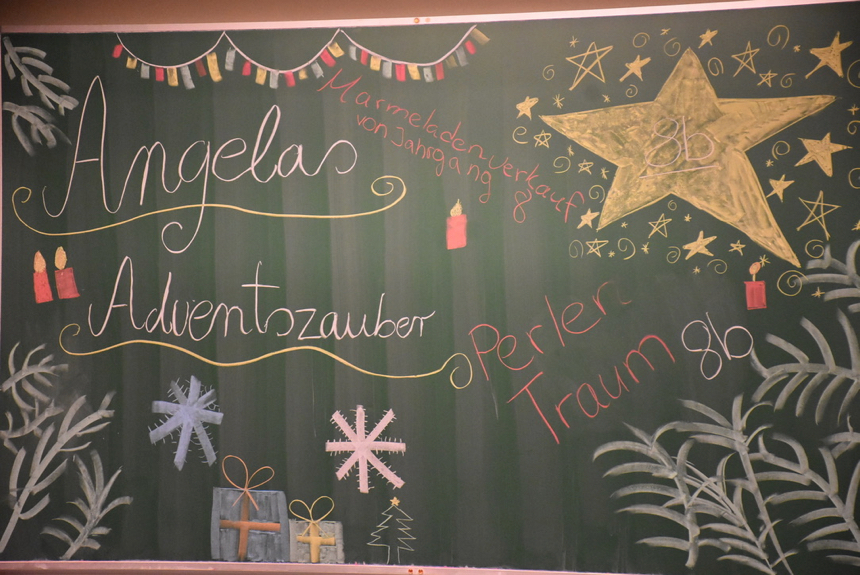 Angelas
Adventszauber
Marmeladenverkauf
von Jahrgang 8
8b
Perlen
Traum 8b